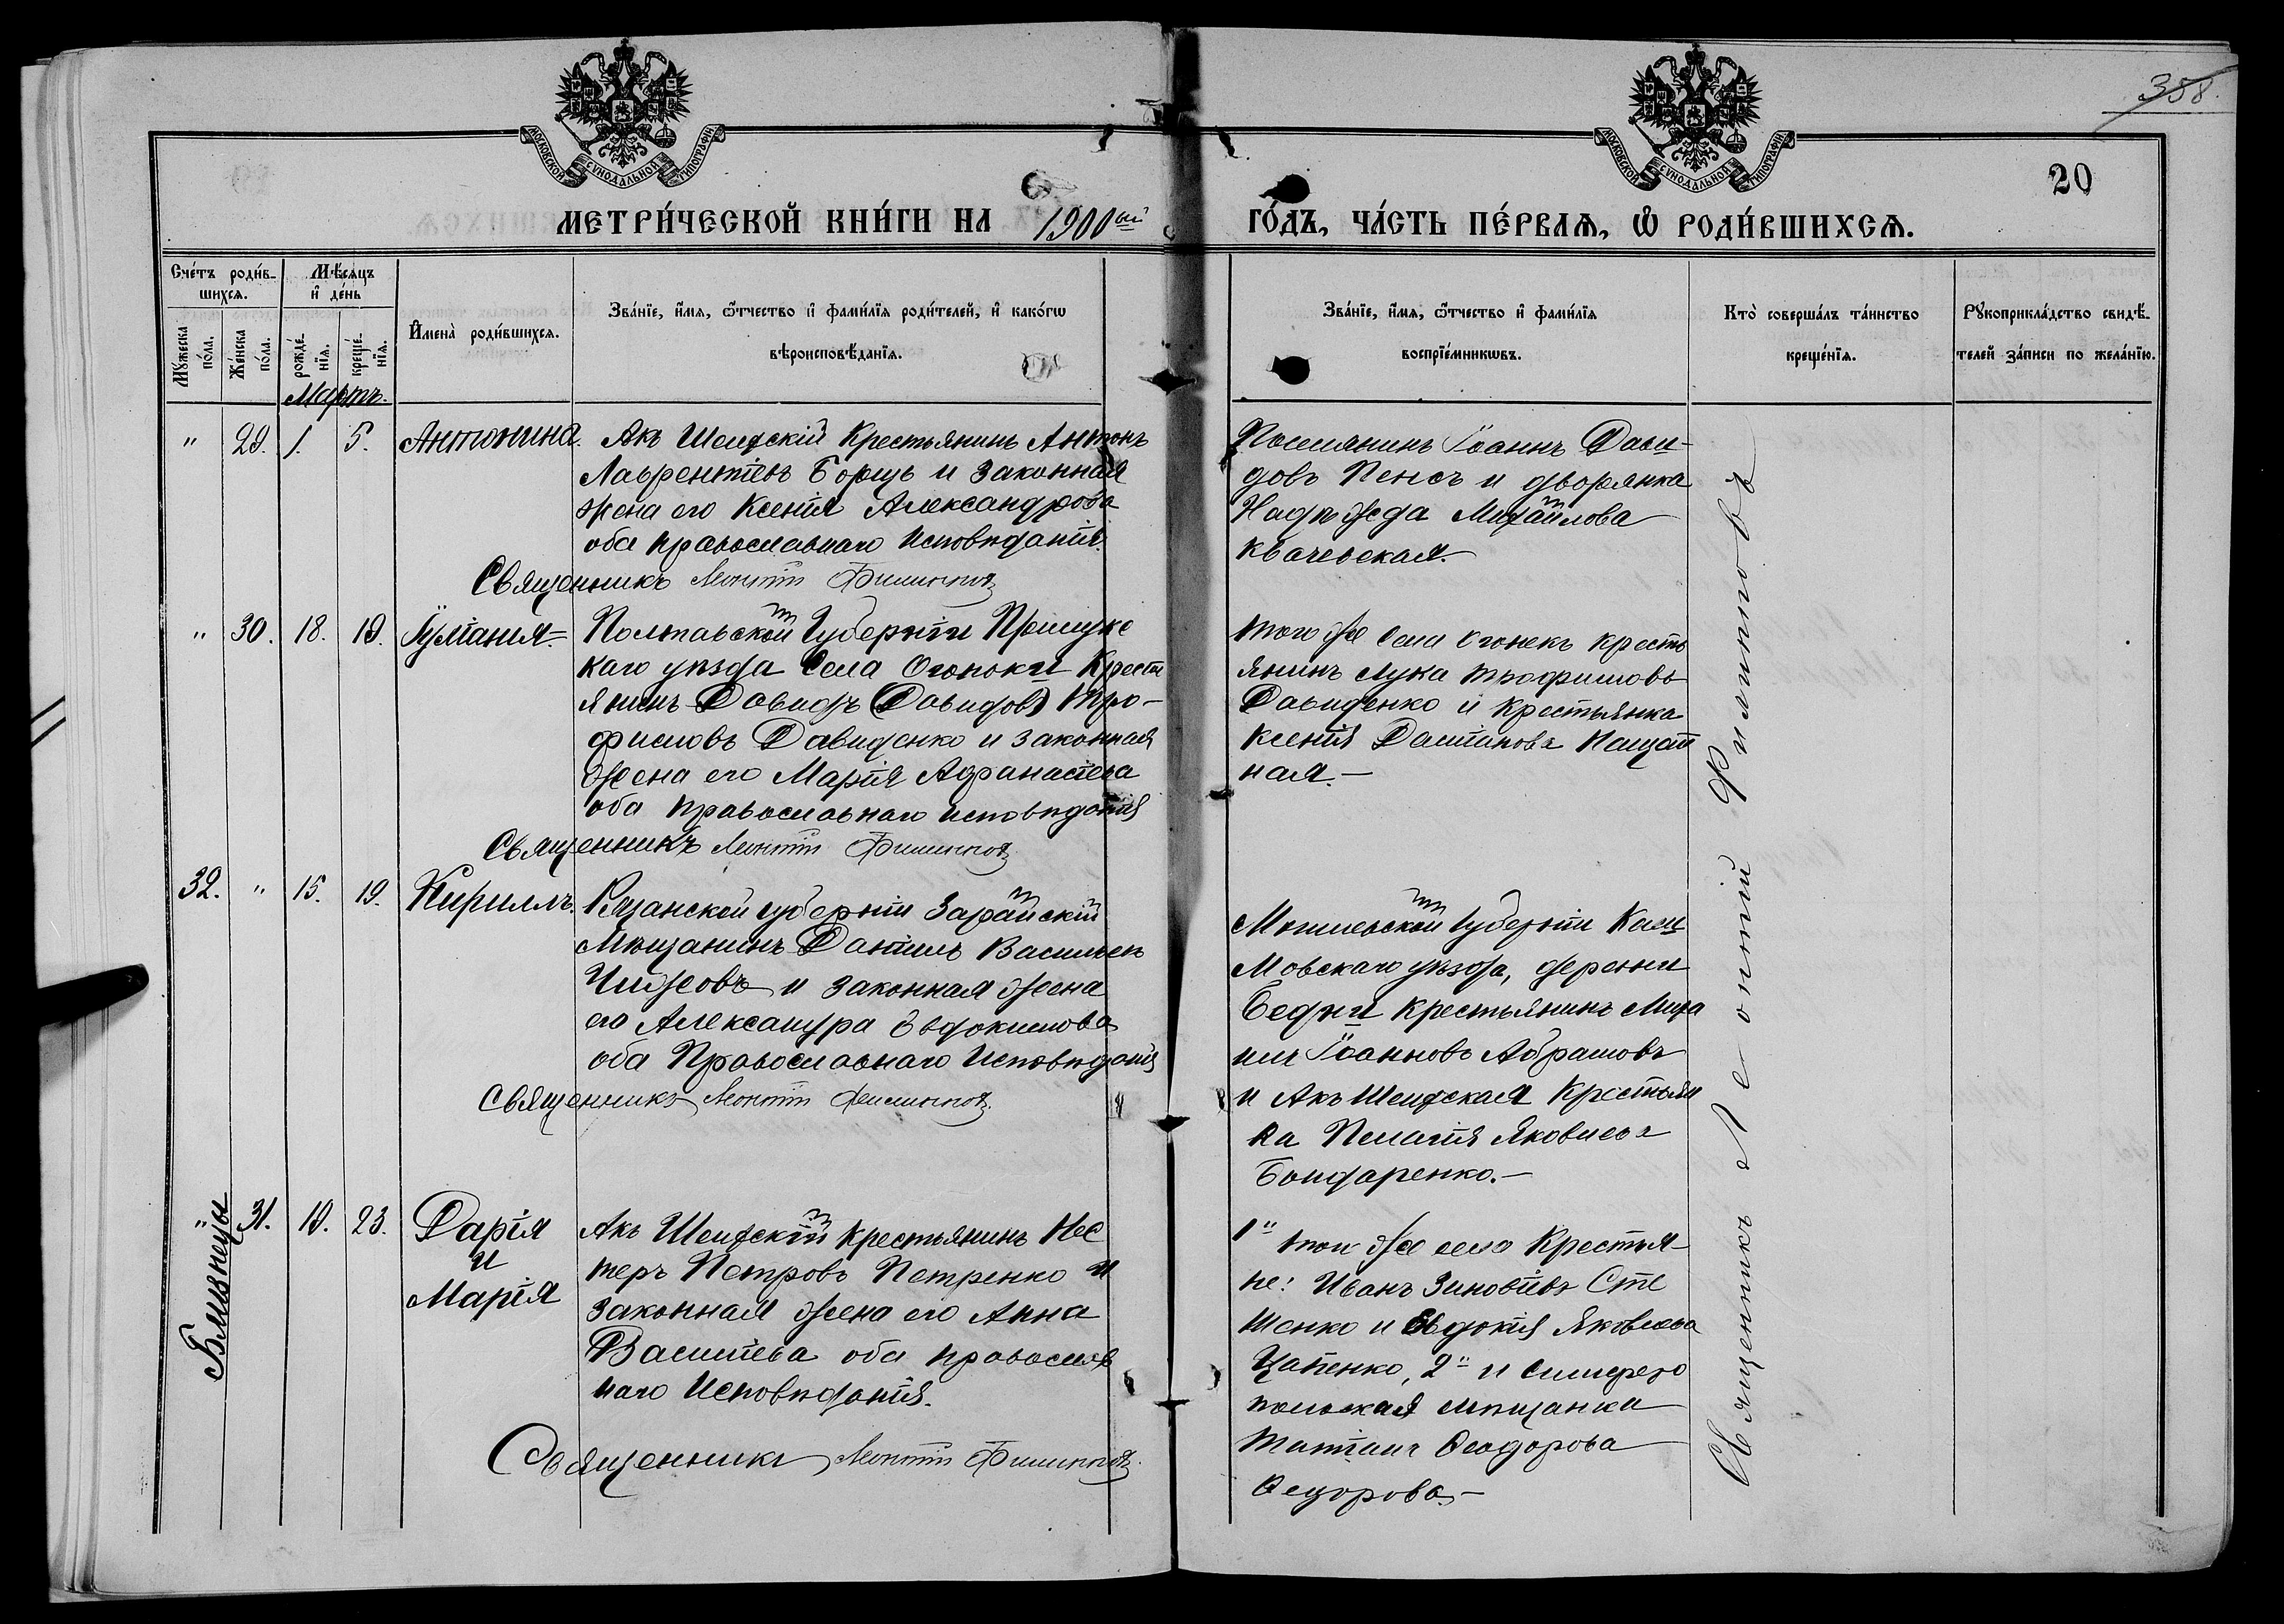 358.
20
МОСКОВСКОЙ СѴНОДАЛЬНОЙ ТИПОГРАФІИ
МОСКОВСКОЙ СѴНОДАЛЬНОЙ ТИПОГРАФІИ
МЕТРИ́ЧЕСКОЙ КНИ́ГИ НА 1900ый ГО́ДЪ, ЧА́СТЬ ПЕ́РВАѦ, Ѡ РОДИ́ВШИХСѦ.
Сче́тъ роди́в-
шихся.
Мѣ́сяцъ
и҆ де́нь
Мꙋжеска по́ла.
Же́нска по́ла.
рожде́нїя.
креще́нїя.
И҆мена̀ роди́вшихся.
Зва́нїе, и҆́мя, ѻ҆́тчество и҆ фами́лїя роди́телей, и҆ како́гѡ
вѣроисповѣ́данїя.
Зва́нїе, и҆́мя, ѻ҆́тчество и҆ фами́лїя
воспрїе́мникѡвъ.
Кто̀ соверша́лъ та́инство
креще́нїя.
Рꙋкоприкла́дство свидѣ́-
телей за́писи по жела́нїю.
Мартъ.
" 29. 1. 5. Антонина.
Акъ Шеихскій Крестьянинъ Антонъ
Лаврентіевъ Борщъ и законная
жена его Ксенія Александрова
оба православнаго Исповѣданія.
Священникъ Леонтій Филипповъ
Поселянинъ Іоаннъ Дави-
довъ Пенсъ и дворянка
Надежда Михайлова
Квачевская.
" 30. 18. 19. Іуліанія
Полтавской Губерніи Прилукс
каго уѣзда Села Огоньки Крестья
янинъ Давидъ (Давидов) Тро-
фимовъ Давиденко и законная
жена его Марія Афанасіева
оба православнаго исповѣданія
Священникъ Леонтій Филипповъ
того же села Огонекъ кресть
янинъ Лука Трофимовъ
Давиденко и Крестьянка
Ксенія Даміанова
ная.
32. " 15. 19. Кириллъ.
Рязанской губерніи Зарайскій
Мѣщанинъ Даніилъ Васильевъ
Чижовъ и законная жена
его Александра Евдокимова
оба Православнаго Исповѣданія
Священникъ Леонтій Филипповъ.
Могилевской Губерніи Кли
мовскаго уѣзда, деревни
крестьянинъ Миха
илъ Іоанновъ Абрамовъ
и Акъ Шеихская Крестьян
ка Пелагія Яковлева
Бондаренко.
Близнецы
" 31. 19. 23. Дарія
и
Марія
Акъ Шеихскій крестьянинъ Нес
теръ Петровъ Петренко и
законная жена его Анна
Васильева оба православ
наго Исповѣданія.
Священникъ Леонтій Филипповъ.
1" того же села Крестья-
не: Иванъ Зиновіевъ Сте
шенко и Евдокія Яковлева
Цапенко, 2" и Симферо
польская мѣщанка
Татіана Ѳеодорова
Ѳедорова.
Священникъ Леонтій Филипповъ